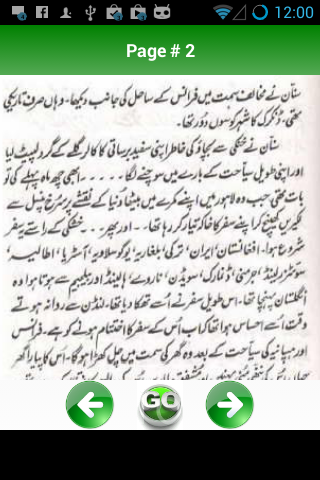 12:00
Page # 2
سنان نے مخالف سمت میں فرانس کے ساحل کی جانب دیکھا۔ وہاں صرف تاریکی
تھی، ڈنکرک کا شہر کوسوں دُور تھا۔
سنان نے خنکی سے بچاؤ کی خاطر اپنی سفید برساتی کا کالر گلے کے گرد لپیٹ لیا
اور اپنی طویل سیاحت کے بارے میں سوچنے لگا . . . . . ابھی چھ ماہ پہلے کی تو
بات تھی جب وہ لاہور میں اپنے کمرے میں بیٹھا دُنیا کے نقشے پر سرخ پنسل سے
لکیریں کھینچ کر اپنے سفر کا خاکہ تیار کر رہا تھا۔۔ اور پھر۔۔ خشکی کے راستے یہ سفر
شروع ہوا۔ افغانستان، ایران، ترکی، بلغاریہ، یوگوسلاویہ، آسٹریا، اطالیہ،
سوئٹزرلینڈ، جرمنی، ڈنمارک، سویڈن، ناروے، ہالینڈ اور بیلجیم سے ہوتا ہوا وہ
انگلستان پہنچا تھا۔ اس طویل سفر نے اُسے تھکا دیا تھا۔ لندن سے روانہ ہوتے
وقت اُسے احساس ہوا تھا کہ اب اُس کے سفر کا اختتام ہونے کو ہے۔ فرانس
اور ہسپانیہ کی سیاحت کے بعد وہ گھر کی سمت میں چل کھڑا ہو گا۔ اُس کا پیارا گھر
جہاں اُس کی ننھی مُنی بہنیں اور
GO